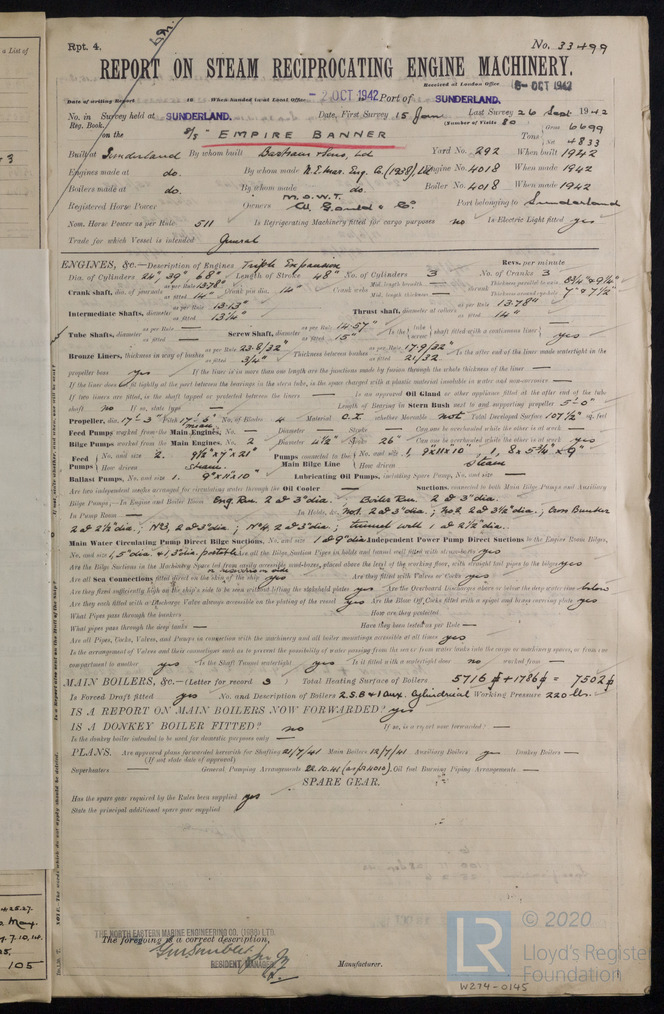 a List of
Rpt. 4.
No. 33499
REPORT ON STEAM RECIPROCATING ENGINE MACHINERY.
Received at London Office 6-OCT 1942
Date of writing Report 19 When handed in at Local Office -2 OCT 1942 Port of SUNDERLAND.
No. in Survey held at SUNDERLAND. Date, First Survey 15 June Last Survey 26 Sept 1942
Reg. Book. (Number of Visits 80)
on the S/S "EMPIRE BANNER Tons Gross 6699
Net 4833
Built at Sunderland By whom built Bartram & Sons, Ltd Yard No. 292 When built 1942
Engines made at do. By whom made N.E. Mar. Eng. Co. (1938), Ltd Engine No. 4018 When made 1942
Boilers made at do. By whom made do. Boiler No. 4018 When made 1942
Registered Horse Power Owners M.O.W.T. Port belonging to Sunderland
Nom. Horse Power as per Rule 511 Is Refrigerating Machinery fitted for cargo purposes no Is Electric Light fitted yes
Trade for which Vessel is intended General
ENGINES, &c.—Description of Engines Triple Expansion Revs. per minute
Dia. of Cylinders 24", 39" 68" Length of Stroke 48" No. of Cylinders 3 No. of Cranks 3
Crank shaft, dia. of journals as per Rule 13.78" as fitted 14" Crank pin dia. 14" Crank webs Mid. length breadth — Mid. length thickness — Thickness parallel to axis 8 3/4" & 9 1/4" Thickness around eyehole 7" & 7 1/2"
Intermediate Shafts, diameter as per Rule 13.13" as fitted 13 1/4" Thrust shaft, diameter at collars as per Rule 13.78" as fitted 14"
Tube Shafts, diameter as per Rule — as fitted — Screw Shaft, diameter as per Rule 14.57" as fitted 15" Is the tube screw shaft fitted with a continuous liner yes
Bronze Liners, thickness in way of bushes as per Rule 23.8/32" as fitted 3/4" Thickness between bushes as per Rule 17.9/32" as fitted 21/32 Is the after end of the liner made watertight in the
propeller boss yes If the liner is in more than one length are the junctions made by fusion through the whole thickness of the liner —
If the liner does not fit tightly at the part between the bearings in the stern tube, is the space charged with a plastic material insoluble in water and non-corrosive —
If two liners are fitted, is the shaft lapped or protected between the liners — Is an approved Oil Gland or other appliance fitted at the after end of the tube
shaft no If so, state type — Length of Bearing in Stern Bush next to and supporting propeller 5'-0"
Propeller, dia. 17'-3" Pitch 17'-6" mean No. of Blades 4 Material C.I. whether Moveable not Total Developed Surface 107 1/2 sq. feet
Feed Pumps worked from the Main Engines, No. — Diameter — Stroke — Can one be overhauled while the other is at work —
Bilge Pumps worked from the Main Engines, No. 2 Diameter 4 1/2" Stroke 26" Can one be overhauled while the other is at work yes
Feed Pumps No. and size 2. 9 1/2" x 7" x 21" How driven Steam. Pumps connected to the Main Bilge Line No. and size 1, 9 x 11 x 10" 1, 8 x 5 3/4 x 9" How driven Steam
Ballast Pumps, No. and size 1. 9" x 11" x 10" Lubricating Oil Pumps, including Spare Pump, No. and size —
Are two independent means arranged for circulating water through the Oil Cooler — Suctions, connected to both Main Bilge Pumps and Auxiliary
Bilge Pumps;—In Engine and Boiler Room Eng. Rm. 2 @ 3" dia. Boiler Rm. 2 @ 3".
In Pump Room — In Holds, &c. No1. 2 @ 3" dia.; No2, 2 @ 3 1/2" dia.; Cross Bunker
2 @ 2 1/2" dia.; No3, 2 @ 3" dia.; No4, 2 @ 3" dia.; tunnel well 1 @ 2 1/2" dia.
Main Water Circulating Pump Direct Bilge Suctions, No. and size 1 @ 9" dia Independent Power Pump Direct Suctions to the Engine Room Bilges,
No. and size 1, 5" dia. & 1, 3" dia. portable Are all the Bilge Suction Pipes in holds and tunnel well fitted with strum-boxes yes
Are the Bilge Suctions in the Machinery Space led from easily accessible mud-boxes, placed above the level of the working floor, with straight tail pipes to the bilges yes
Are all Sea Connections fitted direct on the skin of the ship yes Are they fitted with Valves or Cocks yes
Are they fixed sufficiently high on the ship's side to be seen without lifting the stokehold plates yes Are the Overboard Discharges above or below the deep water line below
Are they each fitted with a Discharge Valve always accessible on the plating of the vessel yes Are the Blow Off Cocks fitted with a spigot and brass covering plate yes
What Pipes pass through the bunkers — How are they protected
What pipes pass through the deep tanks — Have they been tested as per Rule —
Are all Pipes, Cocks, Valves, and Pumps in connection with the machinery and all boiler mountings accessible at all times yes
Is the arrangement of Valves and their connections such as to prevent the possibility of water passing from the sea or from water tanks into the cargo or machinery spaces, or from one
compartment to another yes Is the Shaft Tunnel watertight yes Is it fitted with a watertight door no worked from —
MAIN BOILERS, &c.—(Letter for record 3) Total Heating Surface of Boilers 5716 + 1786 = 7502
Is Forced Draft fitted yes No. and Description of Boilers 2 S.B & 1 aux. Cylindrical Working Pressure 220 lbs.
IS A REPORT ON MAIN BOILERS NOW FORWARDED? yes
IS A DONKEY BOILER FITTED? no If so, is a report now forwarded? —
Is the donkey boiler intended to be used for domestic purposes only —
PLANS. Are approved plans forwarded herewith for Shafting 21/7/41 Main Boilers 12/7/41 Auxiliary Boilers yes Donkey Boilers —
(If not state date of approval)
Superheaters — General Pumping Arrangements 22.10.41 Oil fuel Burning Piping Arrangements —
SPARE GEAR.
Has the spare gear required by the Rules been supplied yes
State the principal additional spare gear supplied
THE NORTH EASTERN MARINE ENGINEERING CO. (1938) LTD.
The foregoing is a correct description,
RESIDENT MANAGER
Manufacturer.
105
© 2020
LR
Lloyd's Register
Foundation
W274-0145